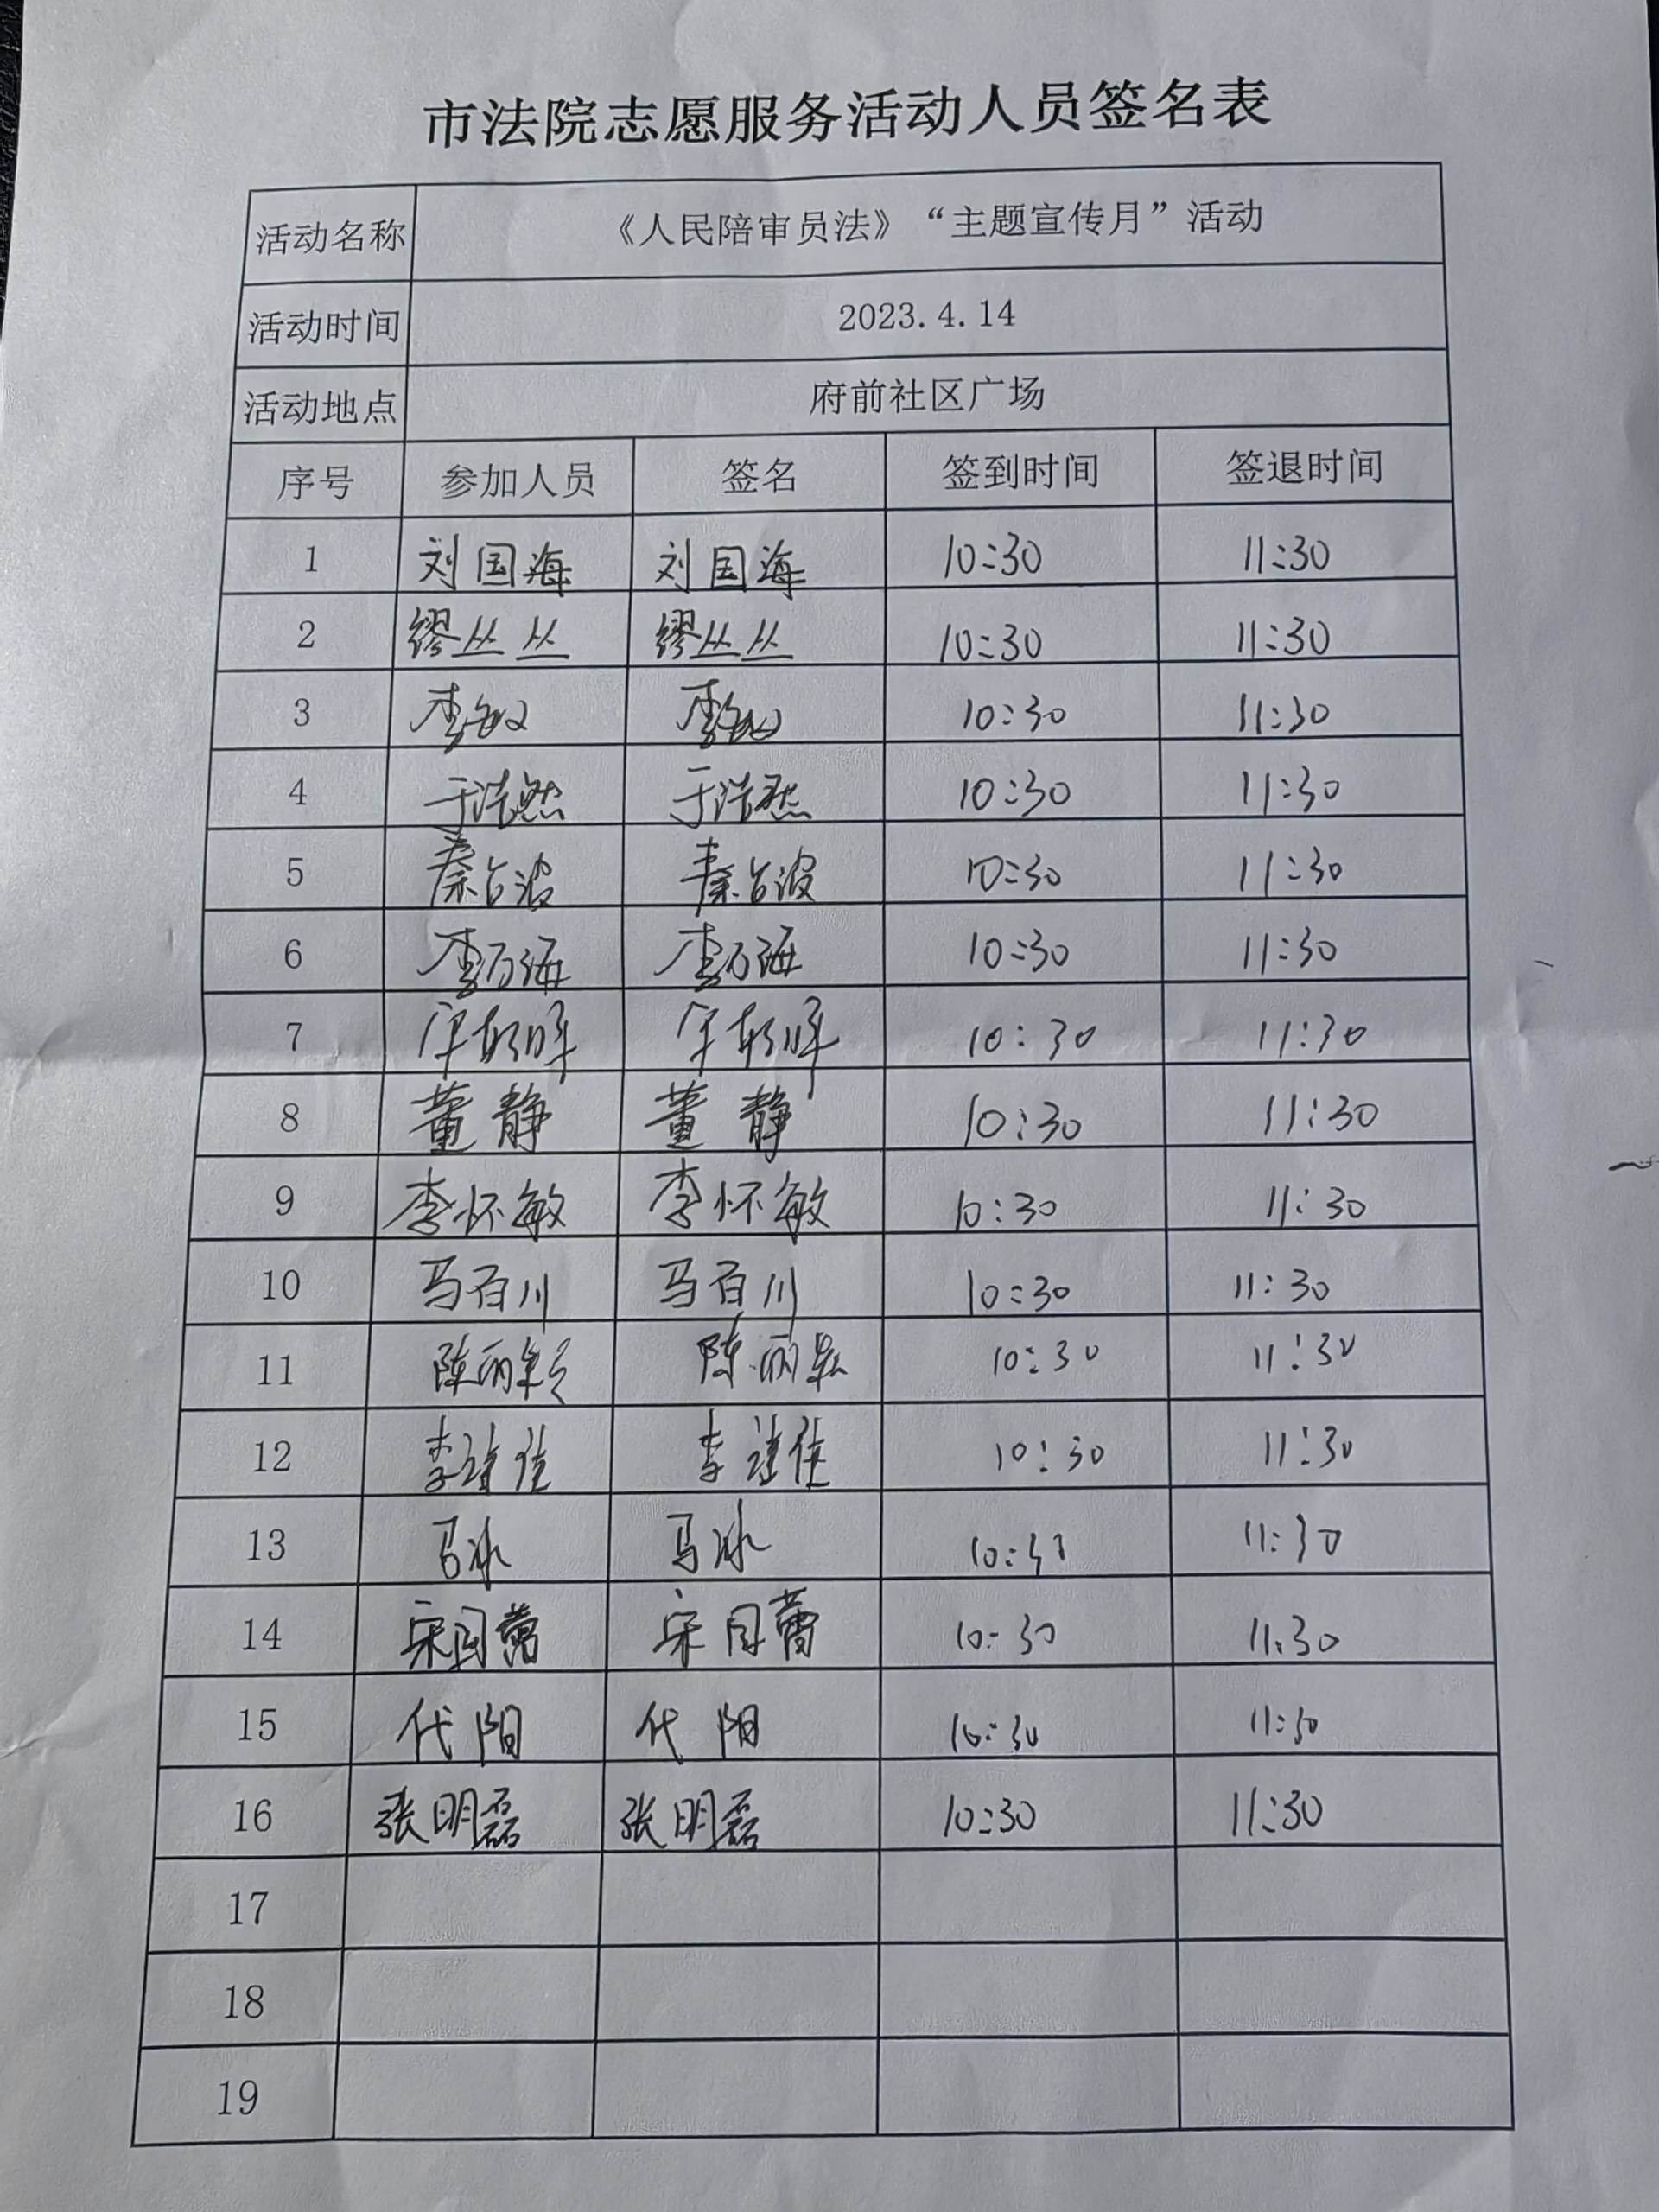 市法院志愿服务活动人员签名表
活动名称 《人民陪审员法》“主题宣传月”活动
活动时间 2023.4.14
活动地点 府前社区广场
序号 参加人员 签名 签到时间 签退时间
1 刘国海 刘国海 10:30 11:30
2 缪丛丛 缪丛丛 10:30 11:30
3 李敏 李敏 10:30 11:30
4 于浩然 于浩然 10:30 11:30
5 秦台波 秦台波 10:30 11:30
6 李万海 李万海 10:30 11:30
7 10:30 11:30
8 董静 董静 10:30 11:30
9 李怀敏 李怀敏 10:30 11:30
10 马百川 马百川 10:30 11:30
11 陈丽颖 陈丽颖 10:30 11:30
12 李诗佳 李诗佳 10:30 11:30
13 马冰 马冰 10:30 11:30
14 宋国蕾 宋国蕾 10:30 11:30
15 代阳 代阳 10:30 11:30
16 张明磊 张明磊 10:30 11:30
17
18
19